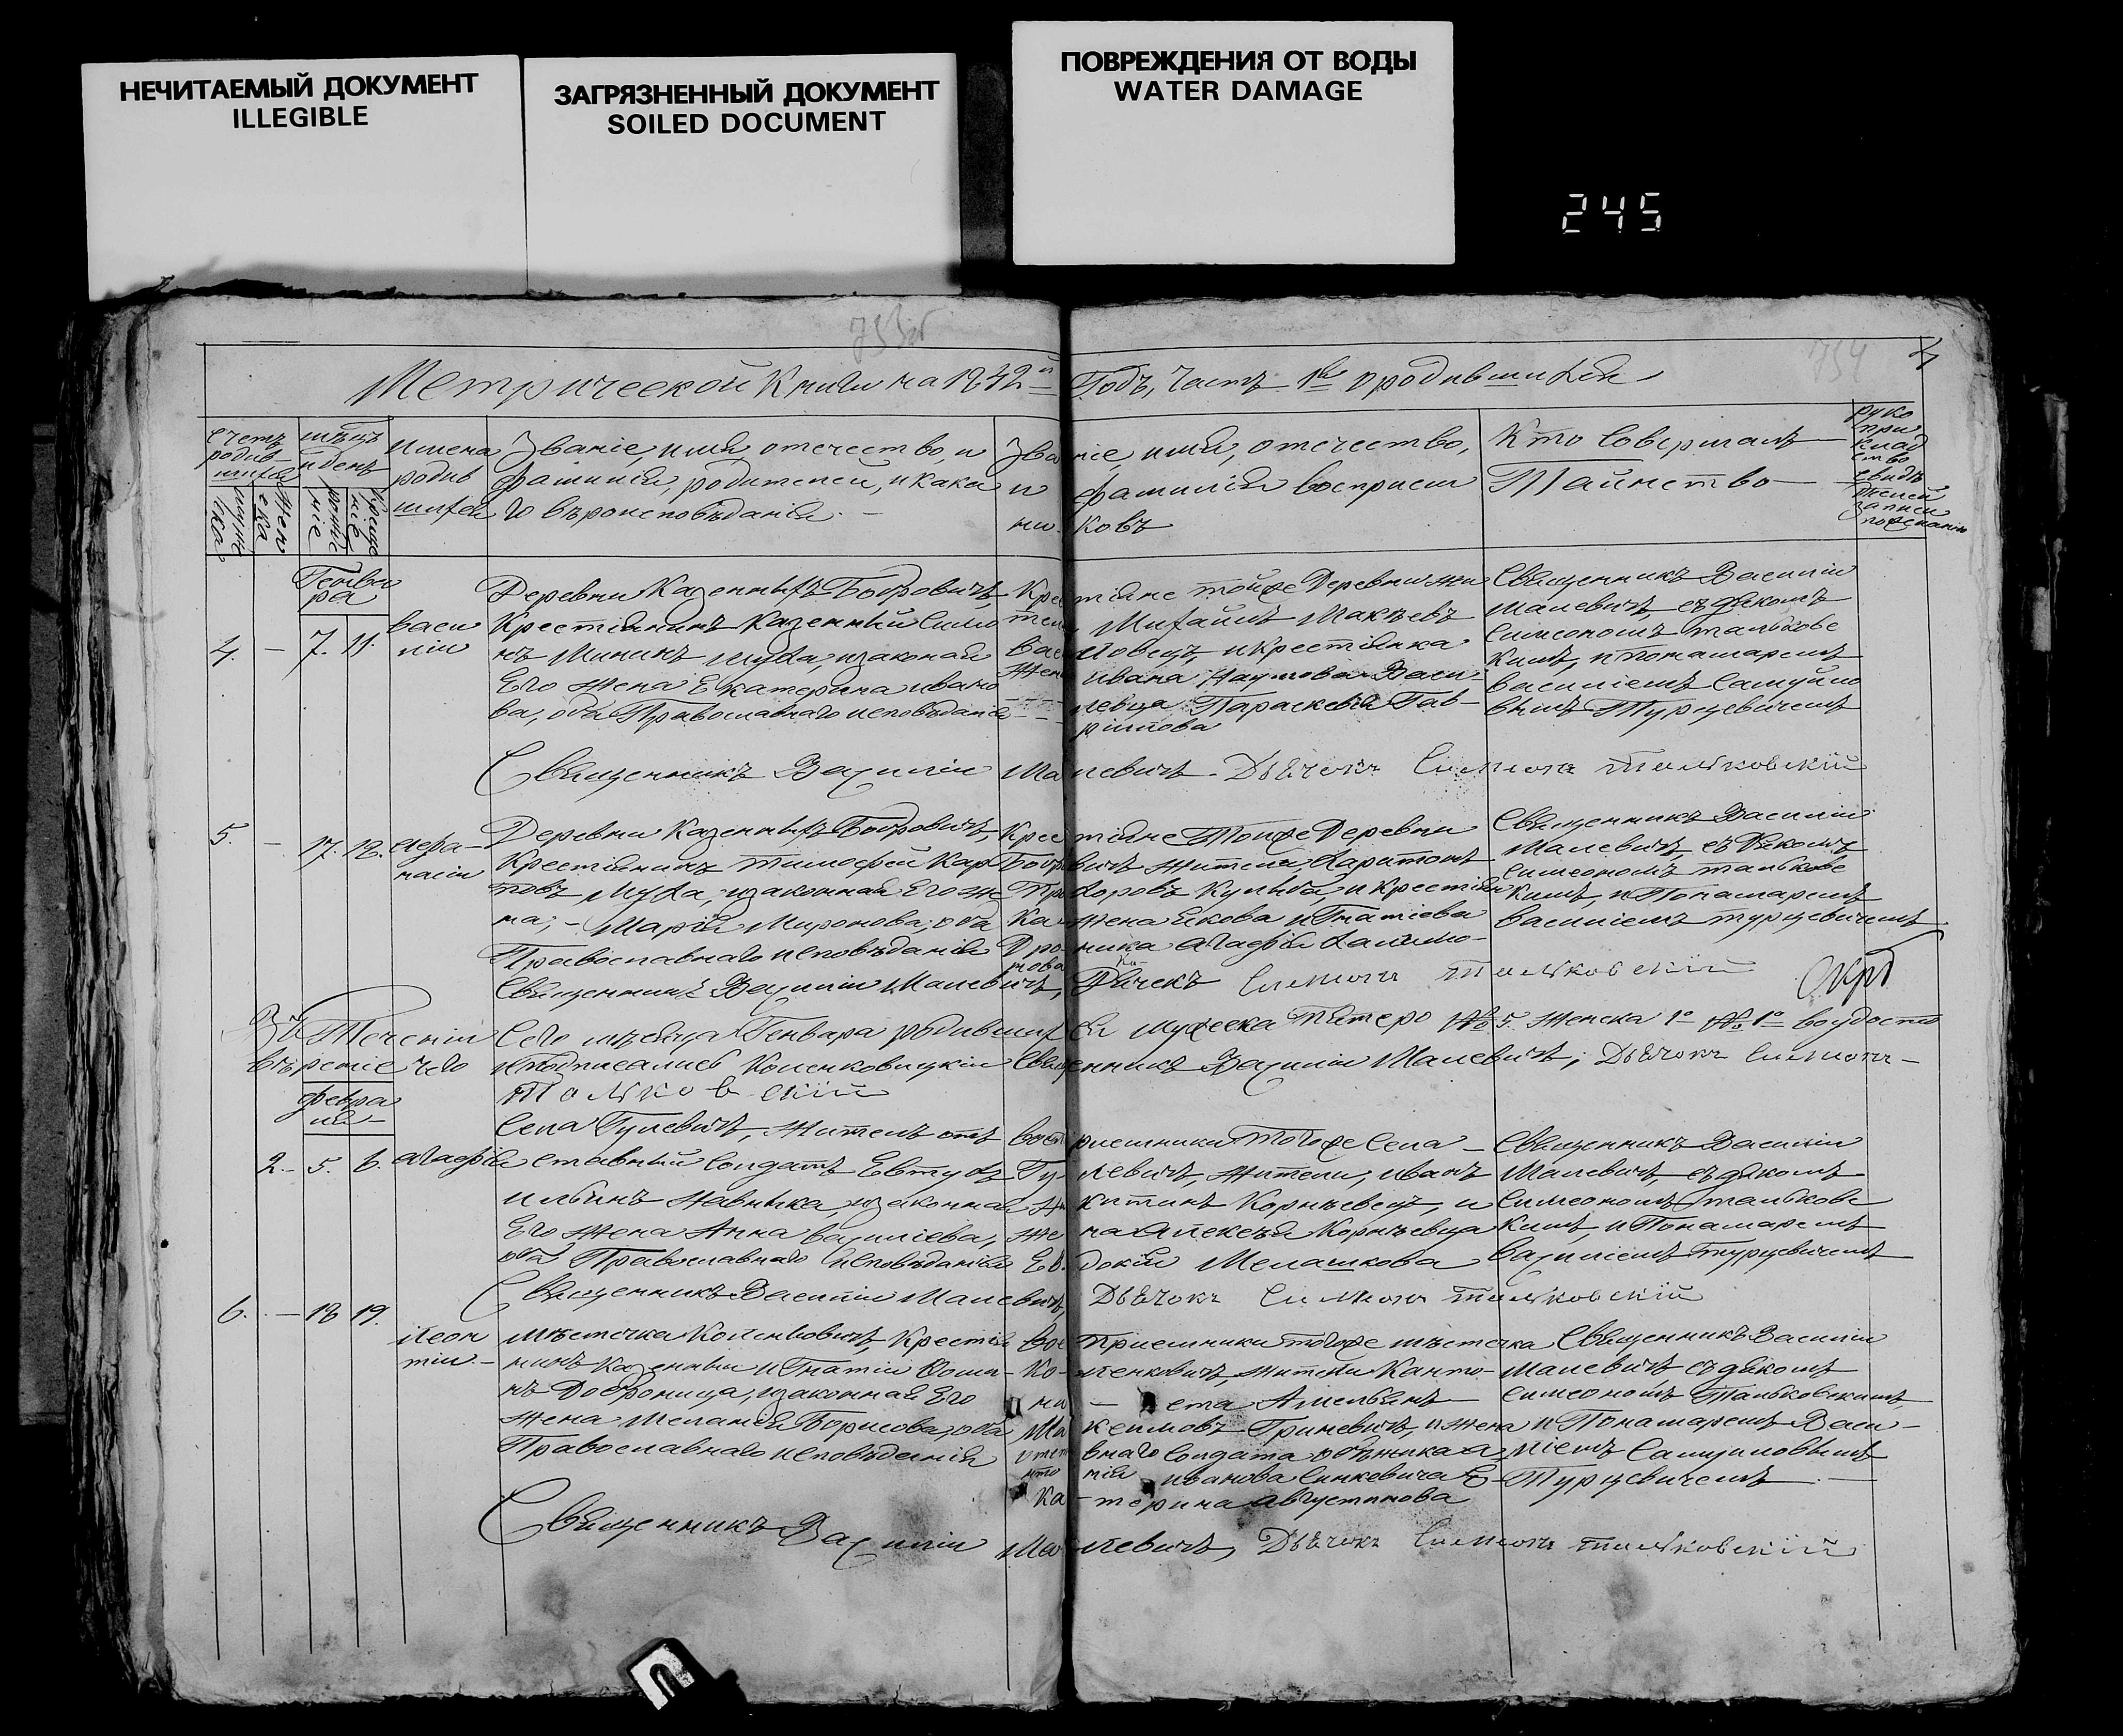 НЕЧИТАЕМЫЙ ДОКУМЕНТ
ILLEGIBLE
ЗАГРЯЗНЕННЫЙ ДОКУМЕНТ
SOILED DOCUMENT
ПОВРЕЖДЕНИЯ ОТ ВОДЫ
WATER DAMAGE
245
754
Метрической Книги на 1842й Годъ, Часть 1я о родившихся
Счетъ родив шихся
мужеска
женска
мѣсцъ и день
рожденіе
крещеніе
Имена родив шихся
Званіе, имя, отечество, и
фамилія, родителей, и како
го вѣроисповѣданія.
Званіе, имя, отечество,
и фамилія воспріем
никовъ
Кто Совершалъ
Таинство
руко при клад ство свидѣ телей записи
Генва ра
4. — 7. 11.
Васи лій
Деревни Казенныхъ Бобровичъ,
Крестіянинъ Казенный Симо
нъ Мининъ Муха, изаконая
Его жена Екатерина ивано
ва, оба Православнаго исповѣданія
Крестіяне тойже Деревни жи
тели Михаилъ Макѣевъ
Васи ловецъ, икрестіянка
Жена ивана Наумова Васи
левца Параскевія Гав
рілова
Священникъ Василій
Малевичъ, съ дякомъ
Симеономъ тальковс
кимъ, и Понамаремъ
василіемъ Самуйло
вымъ Турцевичемъ
Священникъ Василій Малевичъ. Дьячокъ Симеонъ Тальковскій
5. — 17. 18.
Афа насій
Деревни Казенныхъ Бобровичъ,
Крестіянинъ тимофей Кар
повъ Муха, изаконная Его же
на, Марія Миронова, оба
Православнаго исповѣданія
Крестіяне Тойже Деревни
Бобровичъ Жители Харитонъ
Кульба, и Крестіян
ка жена Якова игнатіева
Дроника Агафія
Священникъ Василій
Малевичъ, съ Дякомъ
Симеономъ тальковс
кимъ, и Понамаремъ
василіемъ турцевичемъ
Священникъ Василій Малевичъ, Дячекъ Симеонъ Тальковскій
Въ Теченіи Сего мѣсяца Генвара родившихся мужеска Пятеро № 5. Женска 1о № 1о воудосто
вѣреніе чего иподписались Коленковицкій Священникъ Василій Малевичъ; Дьячокъ Симеонъ
Тальковскій
февра ля
2. 5. 6.
Агафія
Села Гулевичъ, Житель отъ
ставный Солдатъ Евтухъ
ильинъ Навныка, изаконная
Его Жена Анна василіева,
оба Православнаго исповѣданія
воспріемники Тогоже Села
Гулевичъ, Жители, иванъ
Корнѣевецъ, и
жена Алексѣя Корнѣевца
Евдокія Мелашкова
Священникъ Василій
Малевичъ, съ дякомъ
Симеономъ тальковс
кимъ, и Понамаремъ
василіемъ турцевичемъ
Священникъ Василій Малевичъ, Дьячокъ Симеонъ Тальковскій
6. — 18 19.
Леон тій
мѣстечка Коленковичъ, Крестія
нинъ казенный игнатій Фоми
нъ Доброница, изаконная Его
жена Меланія Борисова, оба
Православнаго исповѣданія
Воспріемники тогоже мѣстечка
Коленковичъ, жители Канто
ниста Амельянъ
Мак симовъ Гриневичъ, и жена
отставнаго Солдата
иванова Синкевича Е
катерина августинова
Священникъ Василій
Малевичъ съ дякомъ
Симеономъ Тальковскимъ
и Понамаремъ Васи
ліемъ Самуиловымъ
Турцевичемъ
Священникъ Василій Малевичъ, Дьячокъ Симеонъ тальковскій